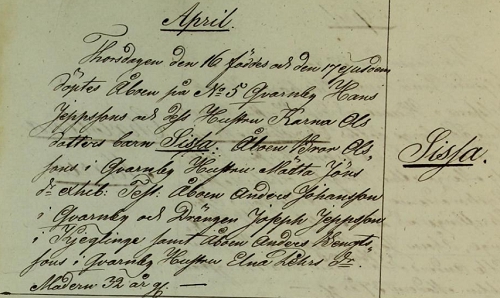 April.
Thorsdagen den 16 föddes och den 17 ejusdem
döptes Åboen på No 5 Qvarnby Hans
Jeppssons och dess Hustru Karna Ols
dotters barn Sissa. Åboen Pror Ols
sons i Qvarnby Hustru Mätta Jöns
dr Test: Åboen Anders Johansson
i Qvarnby och Drängen Joseph Jeppsson
i Tygelsinge samt Åboen Anders Bengts
sons i Qvarnby Hustru Elna Lars Dr.
Modern 32 år gl. —
Sissa.